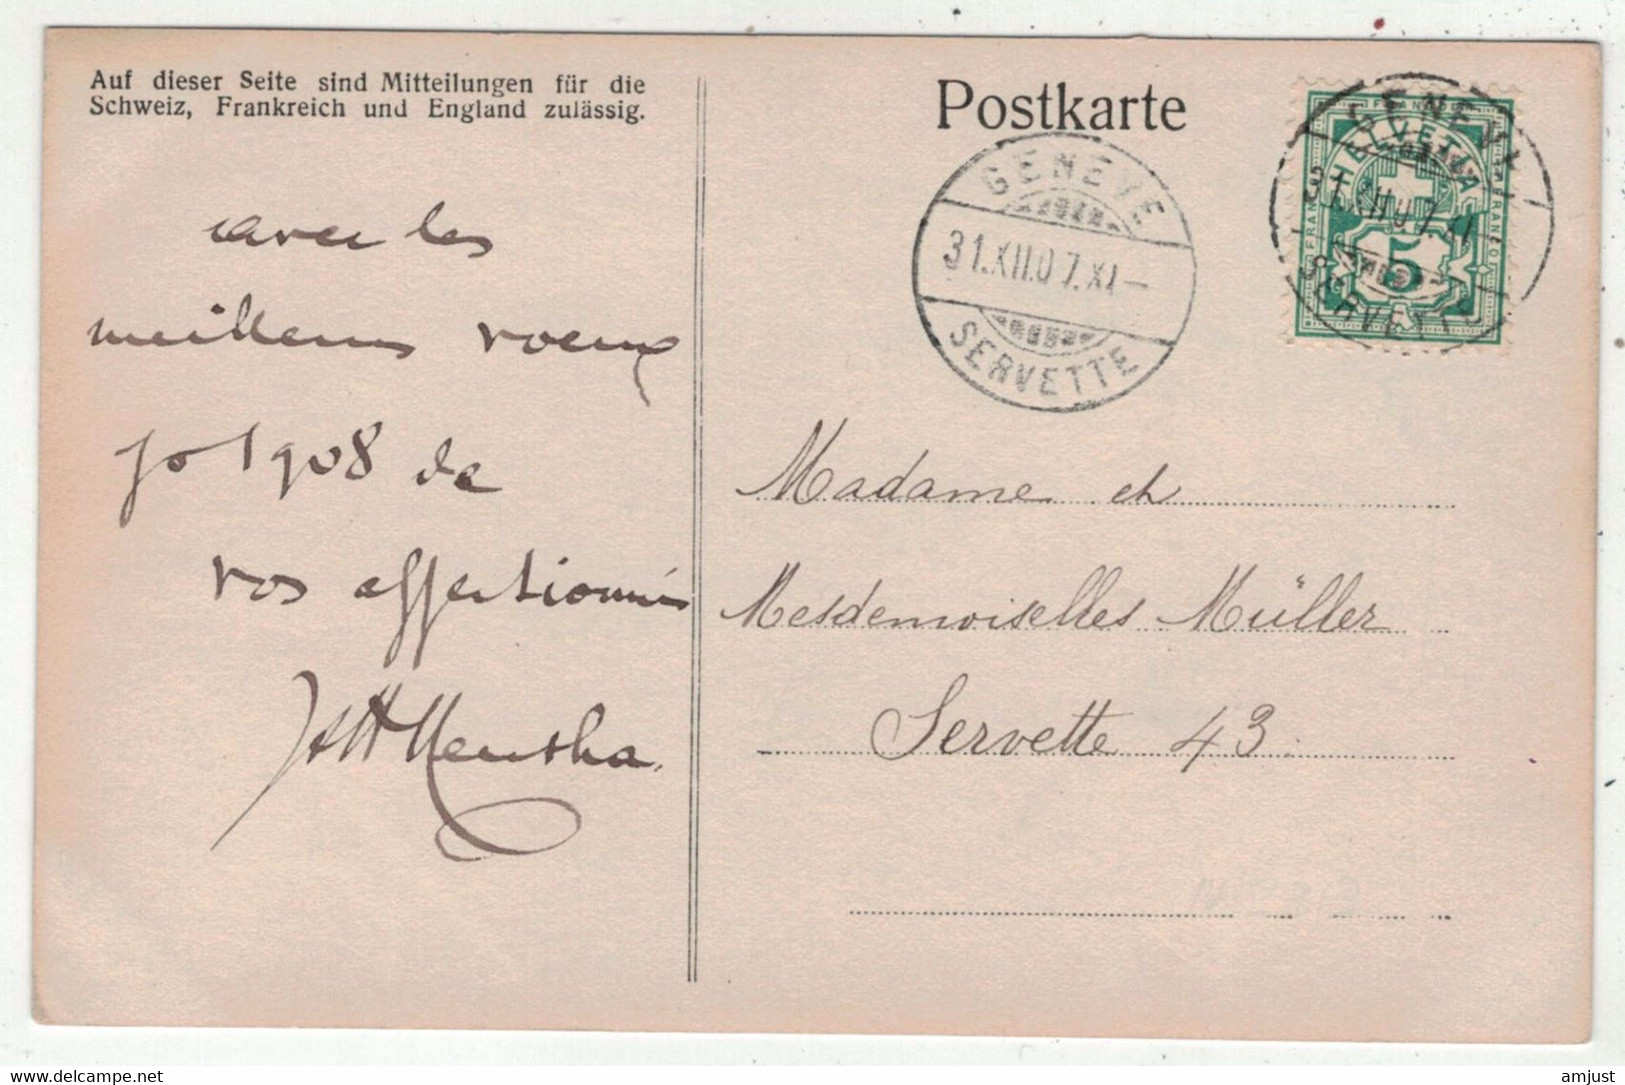 Auf dieser Seite sind Mitteilungen für die
Schweiz, Frankreich und England zulässig.
Postkarte
avec les
meilleurs voeux
pr 1908 de
vos affectionnés
Mentha.
GENEVE
31.XII.07.XI–
SERVETTE
HELVETIA
FRANCO
5
GENEVE
31.XII.07.XI
SERVETTE
Madame et
Mesdemoiselles Müller
Servette 43.
delcampe.net
amjust